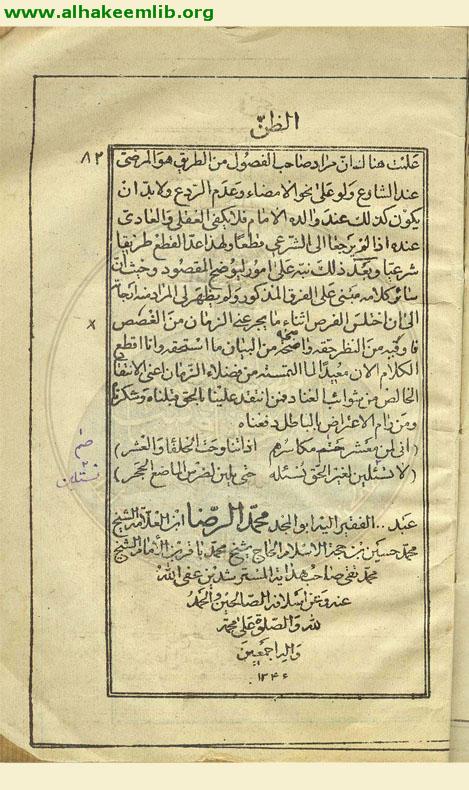 www.alhakeemlib.org
الظن
٨٢
علمت هنا لك ان مراد صاحب الفصول من الطريق هو المرضى
عند الشارع ولو على نحو الامضاء وعدم الردع ولا بد ان
يكون كذلك عند والده الامام فلا يكفى العقلى والعادى
عنده اذا لم يرجعا الى الشرعى قطعا ولهذا عد القطع طريقا
شرعيا وبعد ذلك نبه على امور ليوضح المقصود وحيث ان
سائر كلامه مبنى على الفرق المذكور ولم يظهر لى المراد منه
الى ان اختلس الفرص اثناء ما يجرعنى الزمان من الغصص
فاوفيه من النظر حقه واضحه من البيان ما استحقه وانا اقطع
الكلام الان معيدا لما التمسته من فضلاء الزمان اعنى الانتقاد
الخالص من شوائب العناد فمن انتقد علينا بالحق قبلناه وشكرناه
ومن رام الاعتراض بالباطل دفعناه
(انى لمن معشر ختم مكاسرهم اذا تناوحت الحلفا والعشر)
(لا نستلين لغير الحق نسئله حتى يلين لضرس الماضغ الحجر)
نستلين
عبد.. الفقير اليه ابو المجد محمد الرضا ابن العلامه الشيخ
محمد حسين بن حجة الاسلام الحاج شيخ محمد باقر بن الامام الشيخ
محمد تقى صاحب هداية المسترشدين عفى الله
عنه وعن اسلافه الصالحين والحمد
لله والصلوة على محمد
واله اجمعين
١٣٤٦